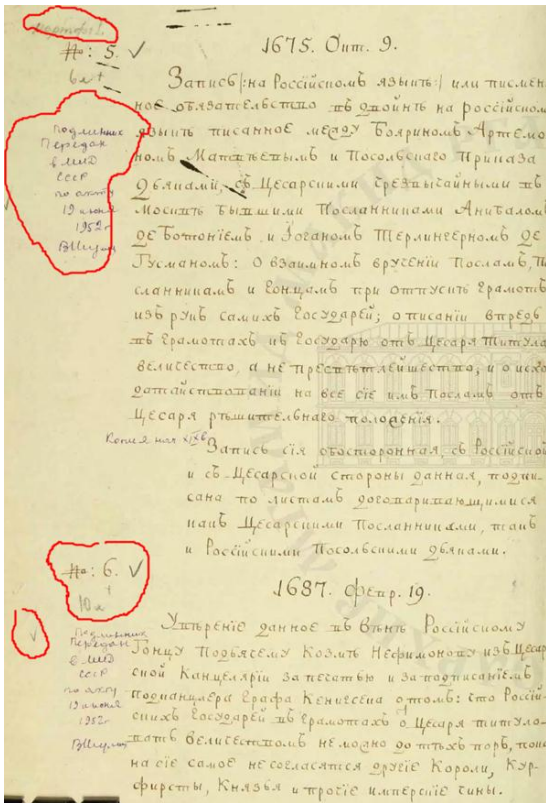 портфель
№: 5. ✓
6 л +
1675. Окт. 9.
Запись /: на Россійскомъ языкѣ :/ или писмен-
ное обязательство въ двойнѣ на россійскомъ
языкѣ писанное между Бояриномъ Артемо-
номъ Матвѣевымъ и Посольскаго Приказа
Дьяками, съ Цесарскими чрезвычайными въ
Москвѣ бывшими Посланниками Анибаломъ
Де Ботоніемъ, и Іоганомъ Терлингеромъ Де
Гусманомъ: О взаимномъ врученіи Посламъ, По-
сланникамъ и Гонцамъ при отпускѣ Грамотъ
изъ рукъ самихъ Государей; о писаніи впредь
въ Грамотахъ къ Государю отъ Цесаря Титула
величество, а не пресвѣтлѣйшество; и о исхо-
датайствованіи на все сіе имъ Посламъ отъ
Цесаря рѣшительнаго положенія.
Подлинник
Передан
в МИД
СССР
по акту
19 июня
1952 г.
Копия нач XIX в
Запись сія обосторонная съ Россійской
и съ Цесарской стороны данная, подпи-
сана по листамъ договаривающимися
какъ Цесарскими Посланниками, такъ
и Россійскими Посольскими Дьяками.
№: 6. ✓
10 л +
1687. Февр. 19.
Увѣреніе данное въ Вѣнѣ Россійскому
Гонцу Подьячему Козмѣ Нефимонову изъ Цесар-
ской Канцеляріи за печатью и за подписаніемъ
Подканцлера Графа Кенигсека о томъ: что Россій-
скихъ Государей въ грамотахъ о Цесаря титуло-
вать Величествомъ не можно до тѣхъ поръ, пока
на сіе самое не согласятся другіе Короли, Кур-
фирсты, Князья и прочіе имперскіе чины.
Подлинник
Передан
в МИД
СССР
по акту
19 июня
1952 г.